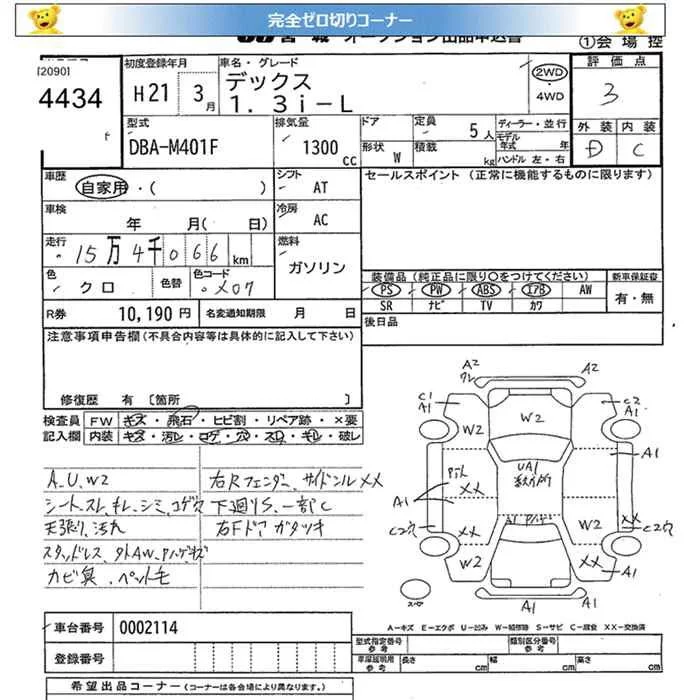 完全ゼロ切りコーナー
JU宮城 オークション出品申込書
①会場控
[2090]
4434
初度登録年月
H21 3月
車名・グレード
デックス
1.3i-L
2WD
・4WD
評価点
3
外装 内装
D C
型式
DBA-M401F
排気量
1300cc
ドア
形状 W
定員 5人
積載 kg
ディーラー・並行
モデル年式 年
ハンドル 左・右
車歴
自家用・( )
シフト
AT
セールスポイント (正常に機能するものに限ります)
車検
年 月( 日)
冷房
AC
走行
15万4千066km
燃料
ガソリン
色
クロ
色替
色コード
X07
装備品 (純正品に限り○をつけてください)
新車保証書
PS PW ABS エアB AW
SR ナビ TV カワ
有・無
R券 10,190円
名変通知期限 月 日
後日品
注意事項申告欄(不具合内容等は具体的に記入して下さい)
修復歴 有 〔箇所
検査員記入欄
FW キズ・飛石・ヒビ割・リペア跡・×要
内装 キズ・汚レ・コゲ・穴・スレ・キレ・破レ
A.U.W2
シートスレ、キレ、シミ、コゲ穴
天張り、汚れ
スタッドレス、外AW、Aハゲ、キズ
カビ臭、ペット毛
右Rフェンダー、サイドシル XX
下廻りS、一部C
右Fドア ガタツキ
A2
クレ
A2
C1
A1
C2
A1
W2
W2
W2
A1
UA1
多数カ所
XX
A1
XX
C2穴
W2
W2
XX
XX
C2穴
A1
A1
A1
スペア
A-キズ E-エクボ U-凹み W-補修跡 S-サビ C-腐食 XX-交換済
車台番号 0002114
登録番号
型式指定番号 参考
類別区分番号 参考
車庫証明用 参考
長さ cm
幅 cm
高さ cm
希望出品コーナー (コーナーは各会場により異なります。)